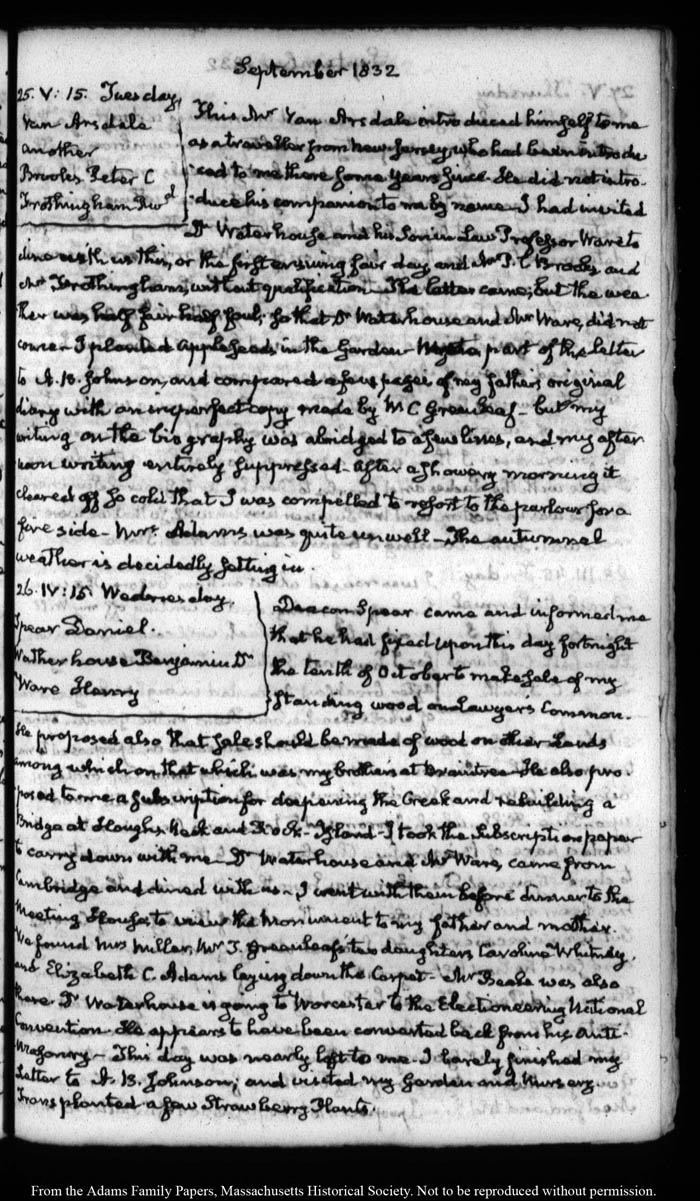 September 1832
25. V: 15. Tuesday.
Van Arsdale
another
Brooks Peter C
Frothingham Nwd
This Mr Van Arsdale introduced himself to me
as a traveller from New Jersey, who had been introdu
ced to me there some years since. He did not intro-
duce his companion to me by name. I had invited
Dr Waterhouse and his Son in Law Professor Ware to
dine with us this, or the first ensuing fair day, and Mr P. C Brooks and
Mr Frothingham, without qualification. The latter came; but the wea
ther was half fair half foul; so that Dr Waterhouse and Mr Ware, did not
come. I planted Appleseeds in the Garden part of the letter
to A. B. Johnson, and compared a few pages of my fathers original
diary with an imperfect copy made by M C Greenleaf - but my
writing on the biography was abridged to a few lines, and my after
noon writing entirely suppressed. After a showery morning it
cleared off so cold that I was compelled to resort to the parlour for a
fire side - Mrs Adams was quite unwell - The autumnal
weather is decidedly setting in.
26. IV: 15. Wednesday.
Spear Daniel.
Watherhouse Benjamin Dr
Ware Henry
Deacon Spear came and informed me
that he had fixed upon this day fortnight
the tenth of October to make sale of my
standing wood on Lawyers Common.
He proposed also that sale should be made of wood on other Lands
among which on that which was my brothers at Braintree. He also pro-
posed to me a subscription for deepening the Creek and rebuilding a
Bridge at Houghs Neck and Rock-Island - I took the Subscription paper
to carry down with me - Dr Waterhouse and Mr Ware, came from
Cambridge and dined with us - I went with them before dinner to the
Meeting House to view the Monument to my father and mother.
We found Mrs Miller, Mr T. Greenleaf's two daughters Caroline Whitney,
and Elizabeth C. Adams laying down the Carpet - Mr Beale was also
there. Dr Waterhouse is going to Worcester to the Electioneering National
Convention. He appears to have been converted back from his Anti-
Masonry - This day was nearly lost to me. I barely finished my
Letter to A. B. Johnson; and visited my Garden and Nursery.
Transplanted a few Strawberry Plants.
From the Adams Family Papers, Massachusetts Historical Society. Not to be reproduced without permission.